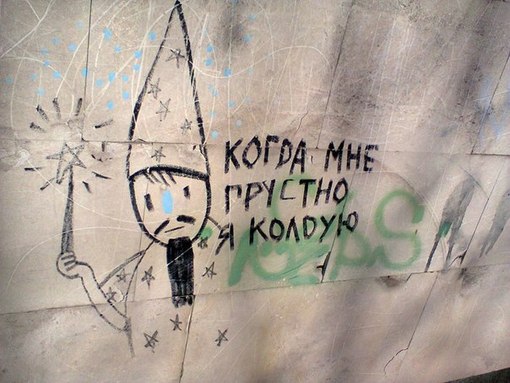 КОГДА МНЕ
ГРУСТНО
Я КОЛДУЮ